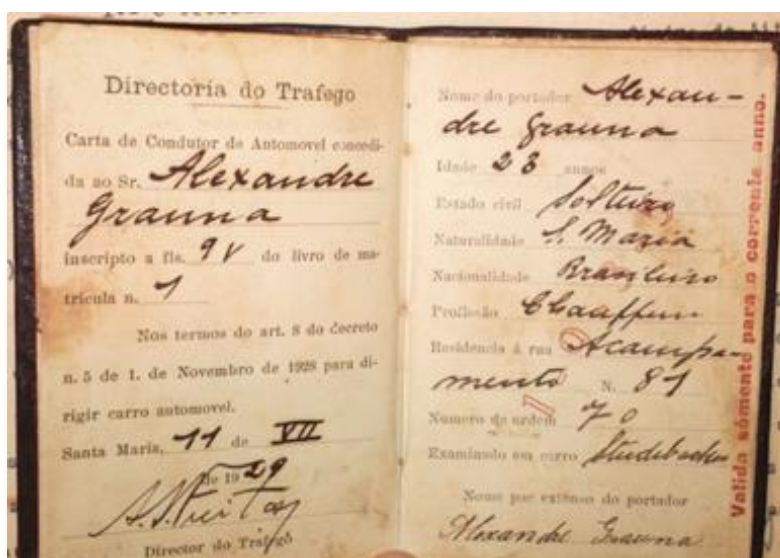 Directoria do Trafego
Carta de Condutor de Automovel concedi-
da ao Sr. Alexandre
Grauna
inscripto a fls. 9V do livro de ma-
tricula n. 1
Nos termos do art. 8 do decreto
n. 5 de 1. de Novembro de 1928 para di-
rigir carro automovel.
Santa Maria, 11 de VII
de 1929
Director do Trafego
Nome do portador Alexan-
dre Grauna
Idade 23 annos
Estado civil Solteiro
Naturalidade S. Maria
Nacionalidade Brasileiro
Profissão Chauffeur
Residencia á rua Acampa-
mento N. 81
Numero de ordem 70
Examinado em carro Studebacker
Nome por extenso do portador
Alexandre Grauna
Valida sómente para o corrente anno.